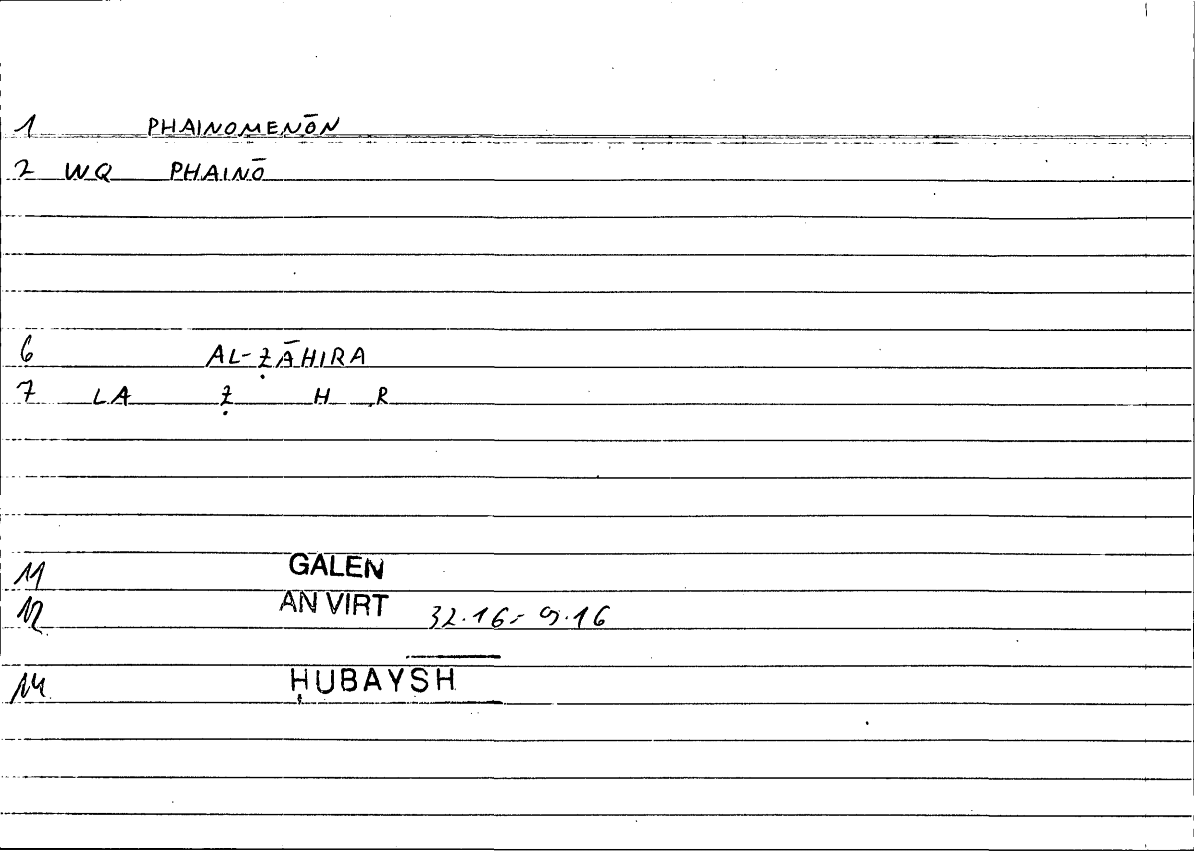 1 PHAINOMENŌN
2 WQ PHAINŌ
6 AL-ẒĀHIRA
7 LA Ẓ H R
11 GALEN
12 AN VIRT 32.16 - 9.16
14 ḤUBAYSH